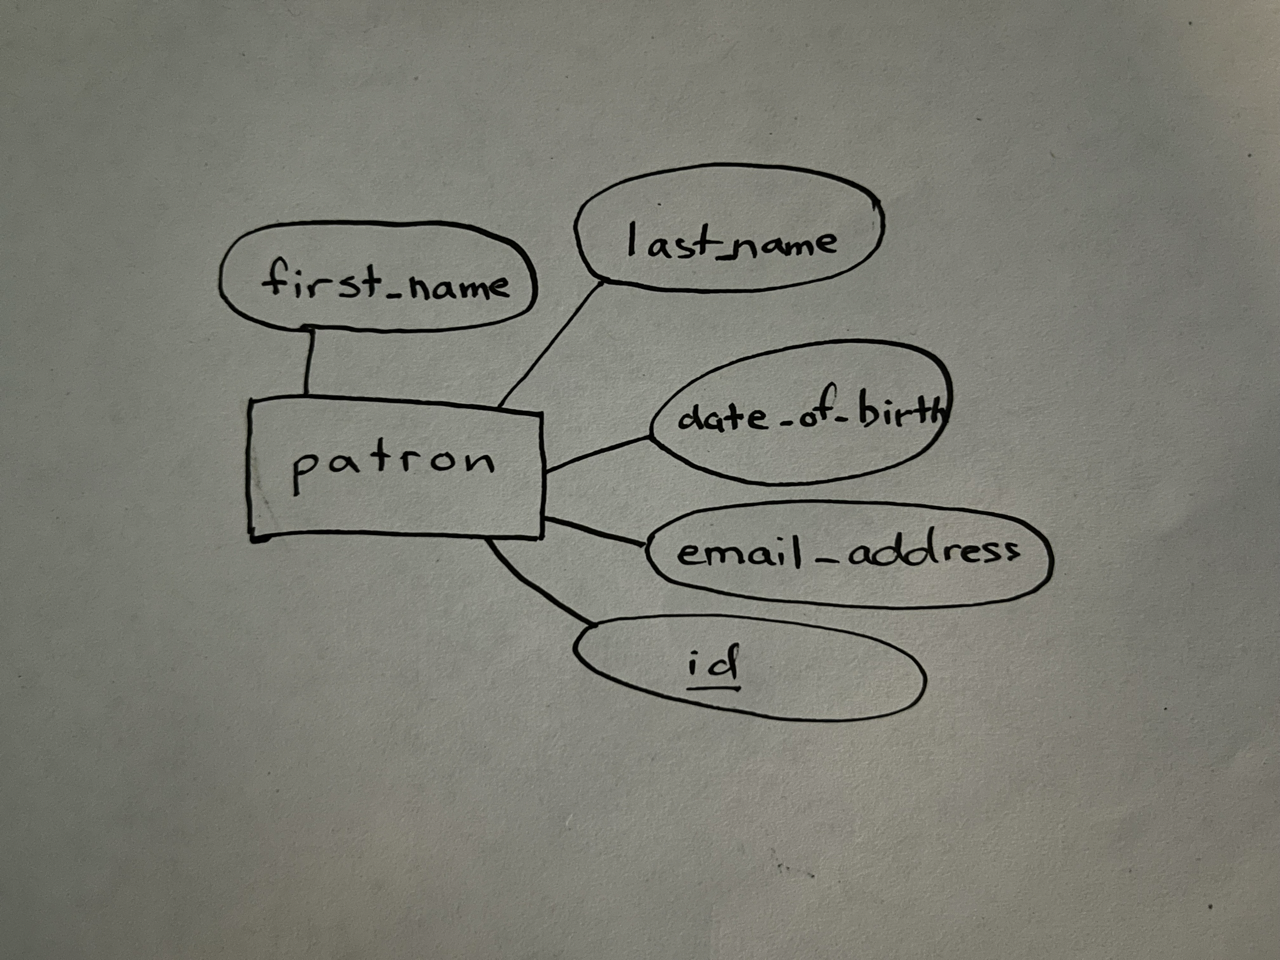 first_name
last_name
patron
date_of_birth
email_address
id